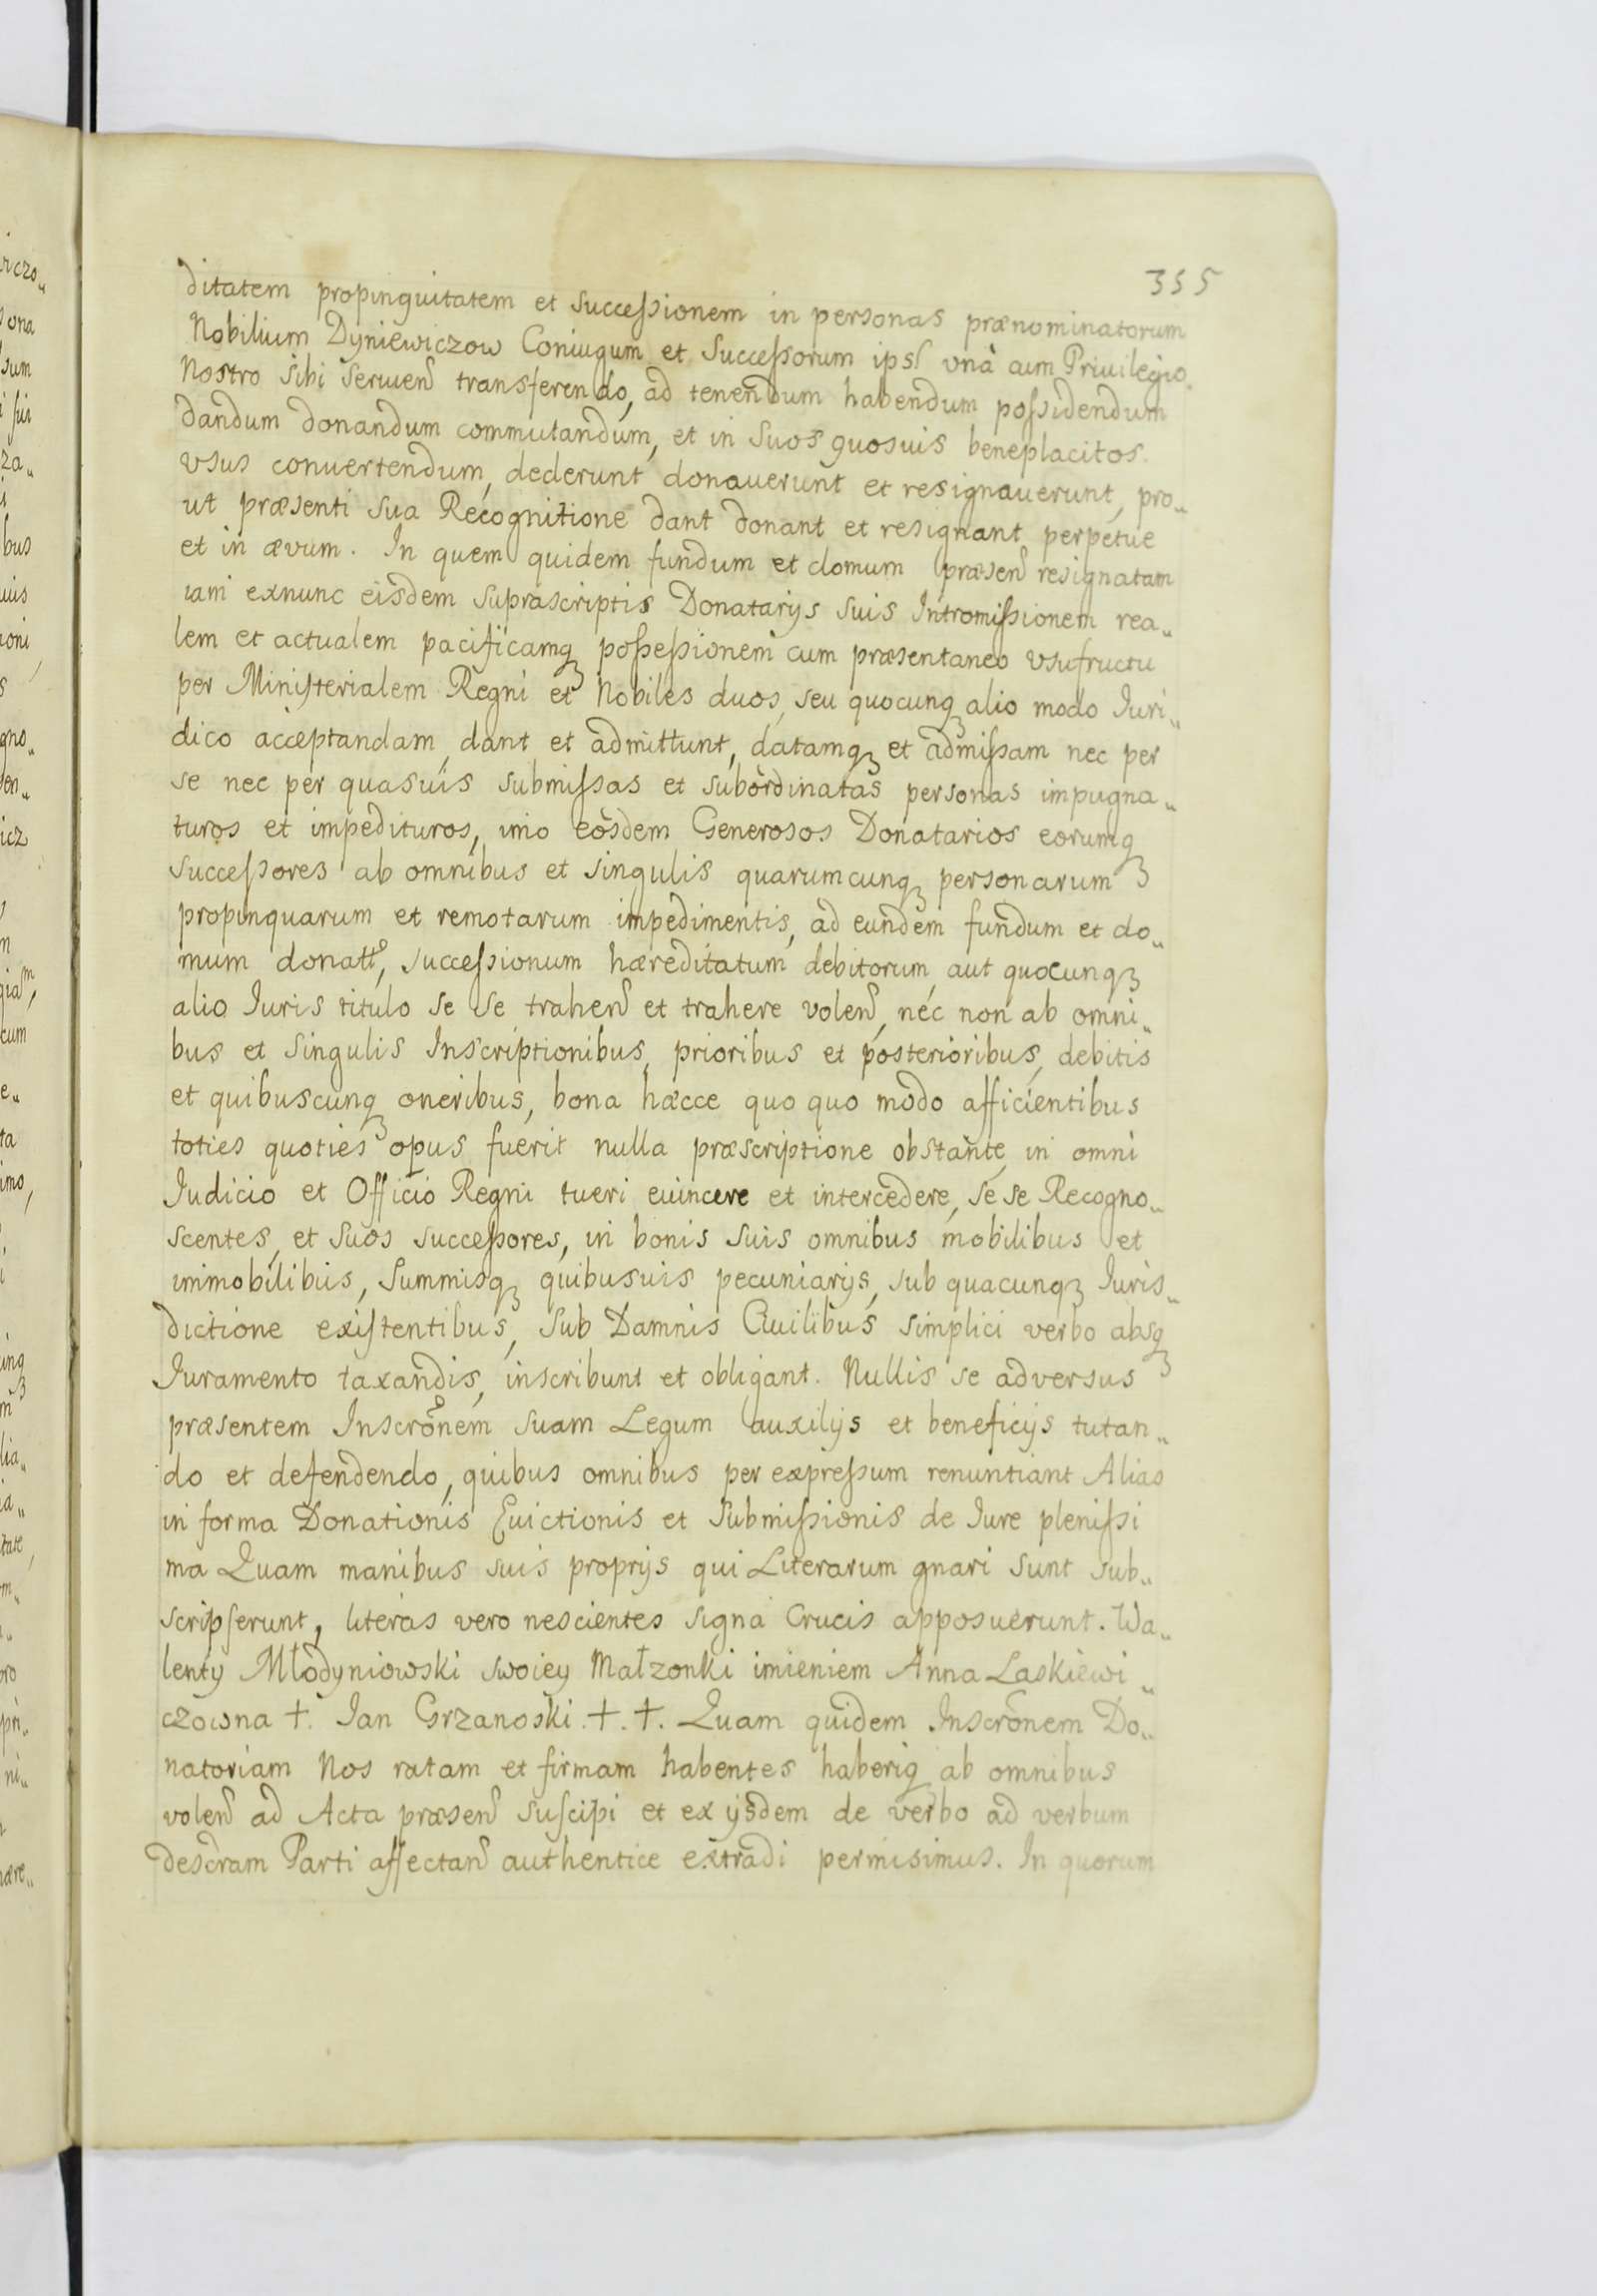 355
ditatem propinquitatem et Successionem in personas prænominatorum
Nobilium Dyniewiczow Coniugum et Successorum ips͛ vnà cum Priuilegio
Nostro sibi Seruen͛ transferendo, ad tenendum habendum possidendum
dandum donandum commutandum, et in Suos quosuis beneplacitos
vsus conuertendum, dederunt donauerunt et resignauerunt, pro„
ut præsenti sua Recognitione dant donant et resignant perpetue
et in ævum. In quem quidem fundum et domum præsen͛ resignatam
iam exnunc eisdem supràscriptis Donatarijs suis Intromissionem rea„
lem et actualem pacificamqꝫ possessionem cum præsentaneo vsufructu
per Ministerialem Regni et Nobiles duos, seu quocunqꝫ alio modo Iuri„
dico acceptandam, dant et admittunt, datamqꝫ et admissam nec per
se nec per quasuis submissas et subordinatas personas impugna„
turos et impedituros, imo eosdem Generosos Donatarios eorumqꝫ
successores ab omnibus et singulis quarumcunqꝫ personarum
propinquarum et remotarum impedimentis, ad eundem fundum et do„
mum donatt͛, successionum hæreditatum debitorum, aut quocunqꝫ
alio Iuris titulo se se trahen͛ et trahere volen͛, nec non ab omni„
bus et Singulis Inscriptionibus, prioribus et posterioribus, debitis
et quibuscunqꝫ oneribus, bona hæcce quo quo modo afficientibus
toties quoties opus fuerit nulla præscriptione obstante, in omni
Iudicio et Officio Regni tueri euincere et intercedere, se se Recogno„
scentes, et suos successores, in bonis suis omnibus mobilibus et
immobilibus, Summisqꝫ quibusuis pecuniarijs, sub quacunqꝫ Iuris„
dictione existentibus, Sub Damnis Ciuilibus simplici verbo absqꝫ
Iuramento taxandis, inscribunt et obligant. Nullis se adversus
præsentem Inscrõnem suam Legum auxilijs et beneficijs tutan„
do et defendendo, quibus omnibus per expressum renuntiant Alias
in forma Donationis Euictionis et Submissionis de Iure plenissi
ma Quam manibus suis proprijs qui Literarum gnari sunt sub„
scripserunt, literas vero nescientes signa Crucis apposuerunt. Wa„
lenty Młodyniowski swoiey Małzonki imieniem Anna Laskiewi„
czowna †. Ian Grzanoski. †. †. Quam quidem Inscrõnem Do„
natoriam Nos ratam et firmam habentes haberiqꝫ ab omnibus
volen͛ ad Acta præsen͛ suscipi et ex ijsdem de verbo ad verbum
descr̃am Parti affectan͛ authentice extradi permisimus. In quorum